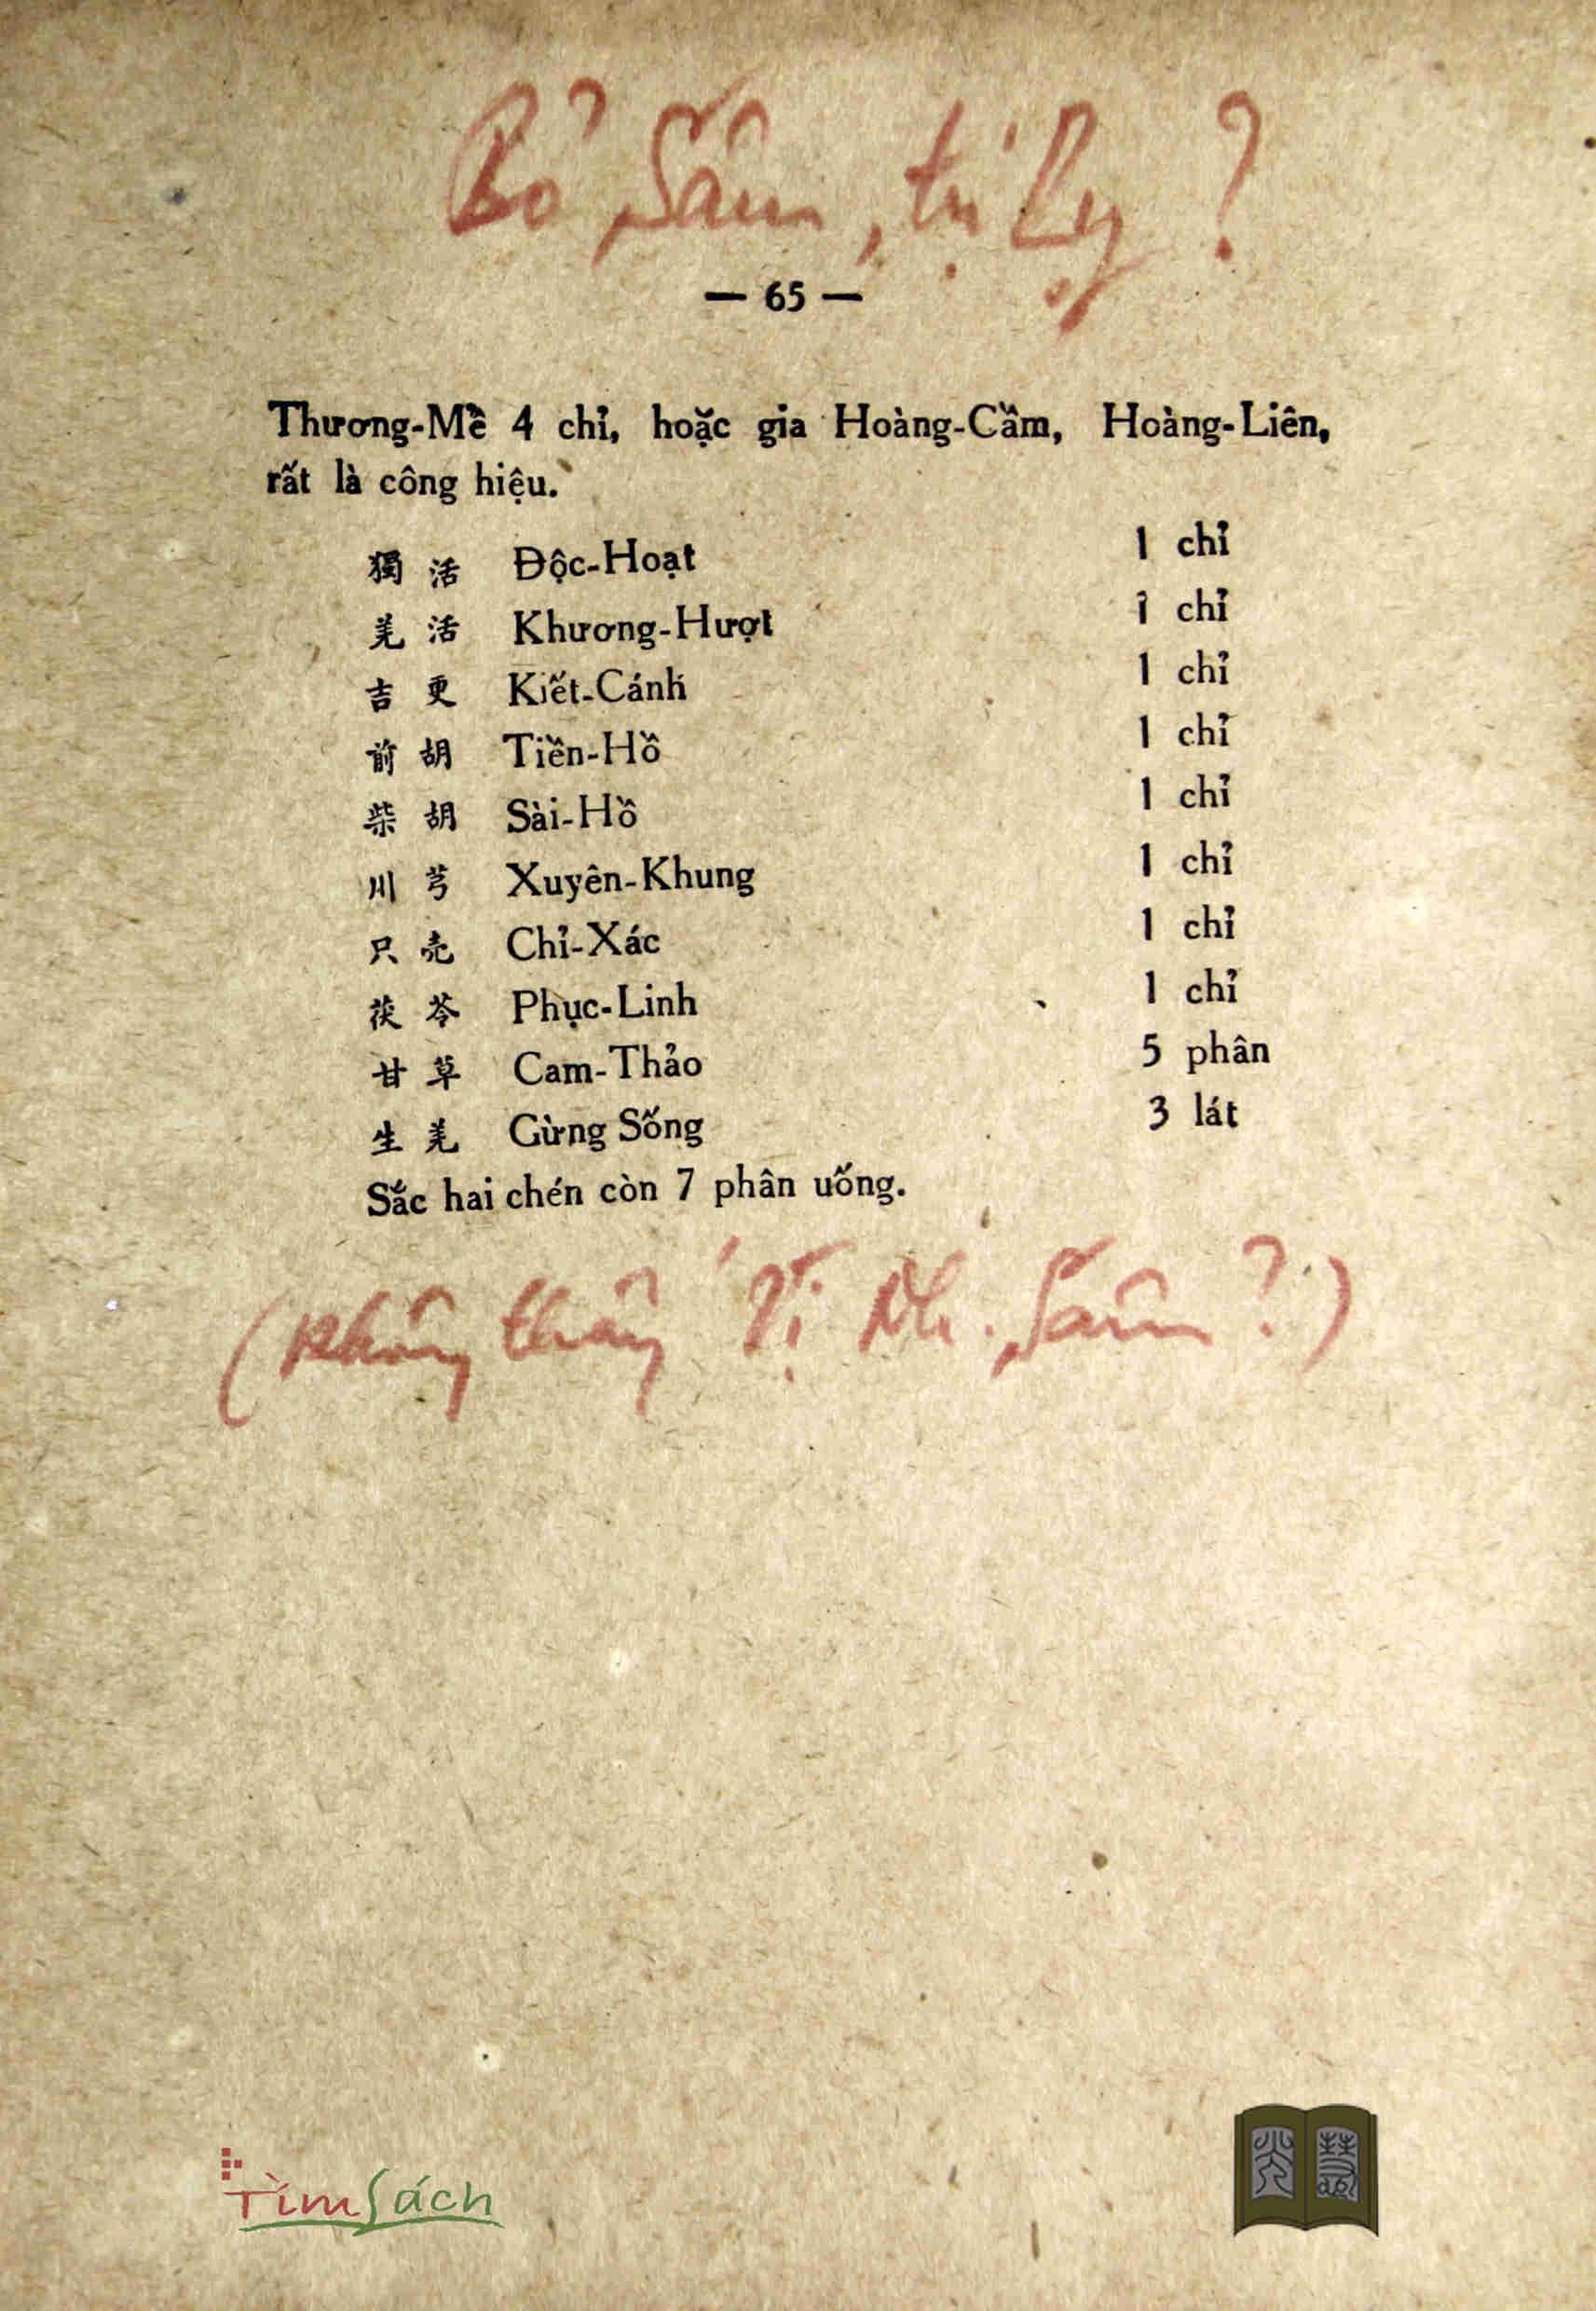 Bỏ Sâm, tị Lỵ ?
— 65 —
Thương-Mề 4 chỉ, hoặc gia Hoàng-Cầm, Hoàng-Liên,
rất là công hiệu.
獨活 Độc-Hoạt 1 chỉ
羌活 Khương-Hượt 1 chỉ
吉更 Kiết-Cánh 1 chỉ
前胡 Tiền-Hồ 1 chỉ
柴胡 Sài-Hồ 1 chỉ
川芎 Xuyên-Khung 1 chỉ
只壳 Chỉ-Xác 1 chỉ
茯苓 Phục-Linh 1 chỉ
甘草 Cam-Thảo 5 phân
生羌 Gừng Sống 3 lát
Sắc hai chén còn 7 phân uống.
(không thấy Vị Nh. Sâm ?)
TìmSách